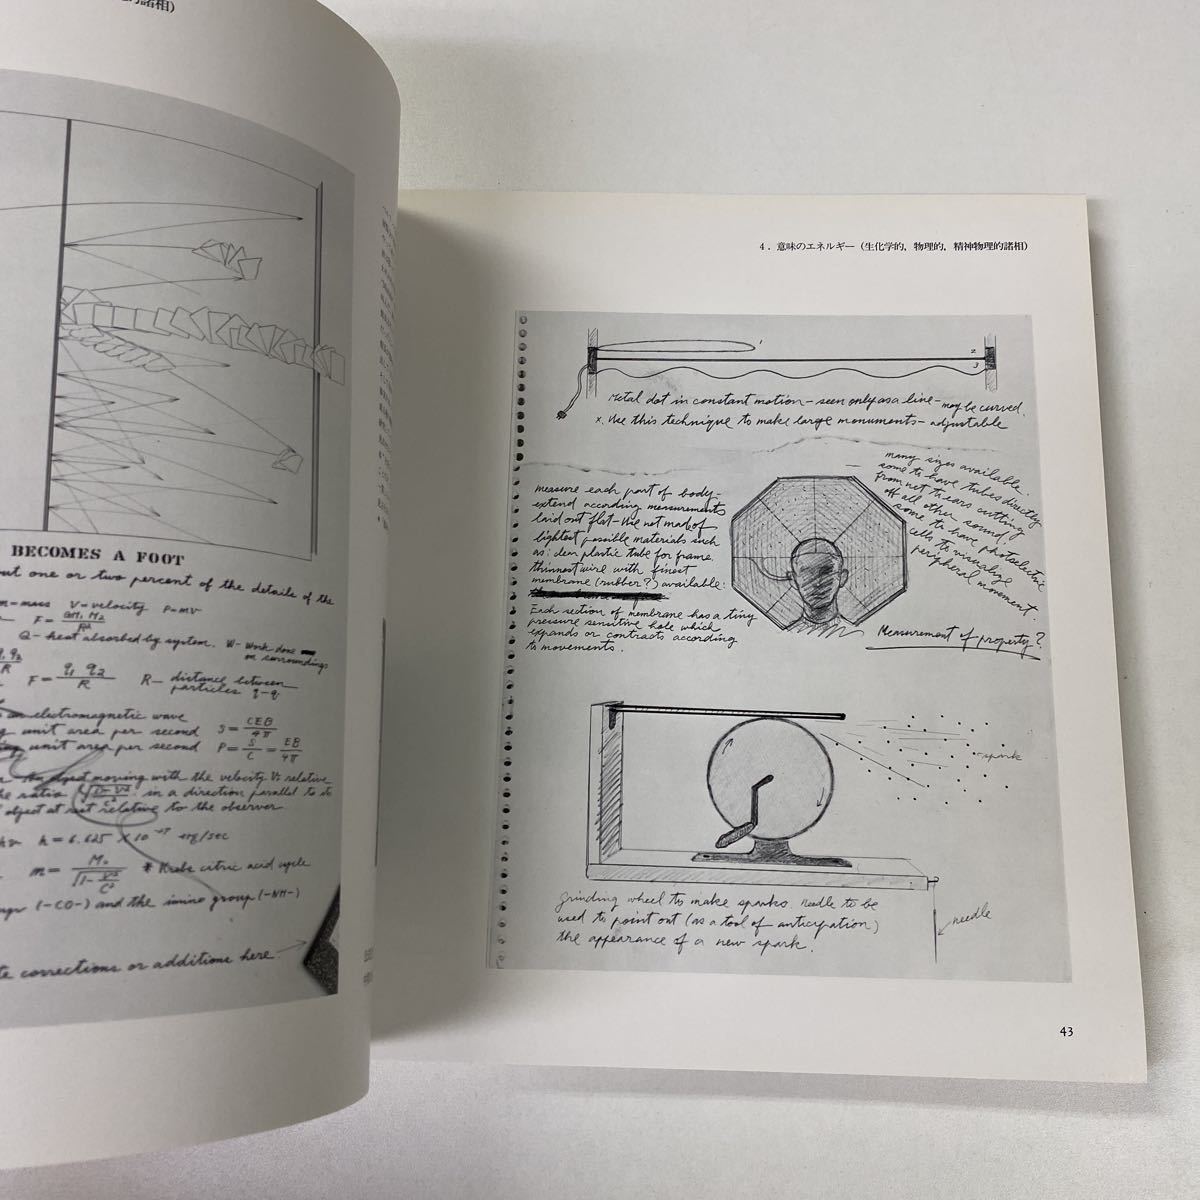 的諸相)
BECOMES A FOOT
out one or two percent of the details of the
m-mass V-velocity P=mV
F = GM₁M₂/R²
Q- heat absorbed by system. W- work done
on surroundings
q₁ q₂/R F = q₁ q₂/R R- distance between
particles q-q
an electromagnetic wave
unit area per second S = CEB/4π
unit area per second P = S/C = EB/4π
object moving with the velocity V relative
the ratio in a direction parallel to its
object at rest relative to the observer
h = 6.625 × 10⁻²⁷ erg/sec
m = M₀/√1-V²/C² * Krebs citric acid cycle
(-CO-) and the imino group (-NH-)
corrections or additions here
4．意味のエネルギー（生化学的，物理的，精神物理的諸相）
1
2
3
Metal dot in constant motion - seen only as a line - may be curved.
x. Use this technique to make large monuments - adjustable
measure each part of body -
extend according measurements
laid out flat - Use net made of
lightest possible materials such
as: clear plastic tube for frame.
thinnest wire with finest
membrane (rubber?) available:
Each section of membrane has a tiny
pressure sensitive hole which
expands or contracts according
to movements.
many sizes available.
some to have tubes directly
from net to ears cutting
off all other sound.
some to have photoelectric
cells to visualize
peripheral movement.
Measurement of property?
spark
grinding wheel to make sparks. needle to be
used to point out (as a tool of anticipation)
the appearance of a new spark.
needle
43